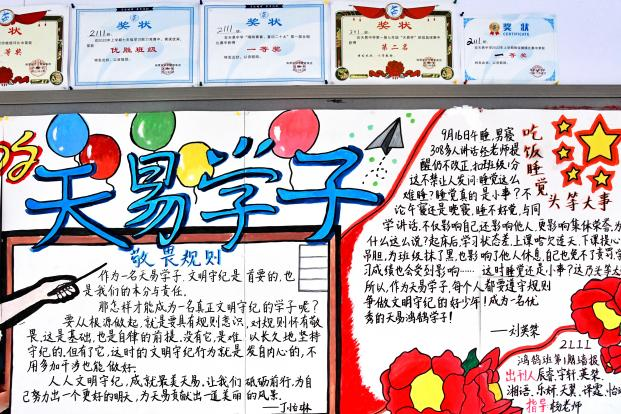 奖状
等奖
奖状
2111班：
优胜班级
奖状
2111班：
一等奖
奖状
2111
第二名
奖状
CERTIFICATE
2111
一等奖
天易学子
敬畏规则
作为一名天易学子，文明守纪是首要的，也
是我们的本分与责任。
那怎样才能成为一名真正文明守纪的学子呢？
要从根源做起，就是要具有规则意识，对规则怀有敬
畏，这是基础，也是自律的前提，没有它，是难以长久地坚持
守纪的，但有了它，这时的文明守纪行为就是发自内心的，不
用多加干涉也能做好。
人人文明守纪，成就最美天易，让我们砥砺前行，为自
己努力出一个更好的明天，为天易贡献出一道美丽的风景。
——丁怡琳
吃饭睡觉
头等大事
9月16日午睡，男寝
308多人讲话经老师提
醒仍不改正，扣班级1分
这不禁让人发问：睡觉这么
难睡？睡觉真的是小事？不
论午寝还是晚寝，睡不好觉，与同
学讲话，不仅影响自己还影响他人，更影响集体荣誉，为
什么这么说？起床后，学习状态差，上课哈欠连天，下课提心
吊胆，为班级抹了黑，也影响了他人休息，自己也免不了责罚，学
习成绩也会受到影响……这时睡觉还是小事？这乃头等大
所以，作为天易学子，每个人都要遵守规则
争做文明守纪的好少年！成为一名优
秀的天易鸿鹄学子！
——刘英桀
2111
鸿鹄班第1期墙报
出刊人 辰睿、宇轩、英桀
湘语、乐妍、天翼、诗霆、怡
指导 杨老师